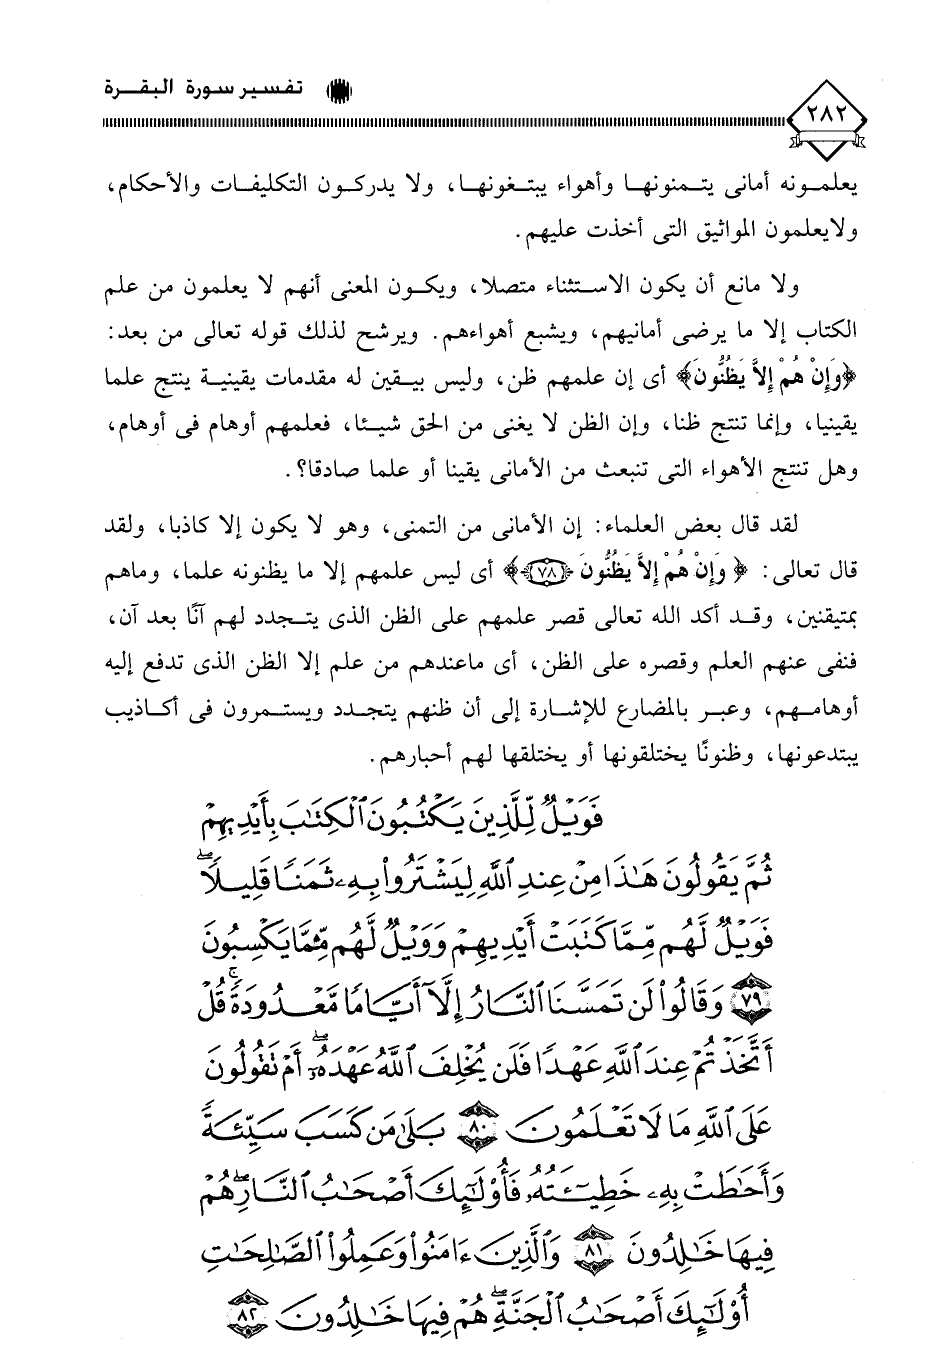 تفسير سورة البقرة
٢٨٢
يعلمونه أمانى يتمنونها وأهواء يبتغونها، ولا يدركون التكليفات والأحكام،
ولايعلمون المواثيق التى أخذت عليهم.
ولا مانع أن يكون الاستثناء متصلا، ويكون المعنى أنهم لا يعلمون من علم
الكتاب إلا ما يرضى أمانيهم، ويشبع أهواءهم. ويرشح لذلك قوله تعالى من بعد:
﴿وَإِنْ هُمْ إِلاَّ يَظُنُّونَ﴾ أى إن علمهم ظن، وليس بيقين له مقدمات يقينية ينتج علما
يقينيا، وإنما تنتج ظنا، وإن الظن لا يغنى من الحق شيئا، فعلمهم أوهام فى أوهام،
وهل تنتج الأهواء التى تنبعث من الأمانى يقينا أو علما صادقا؟.
لقد قال بعض العلماء: إن الأمانى من التمنى، وهو لا يكون إلا كاذبا، ولقد
قال تعالى: ﴿ وَإِنْ هُمْ إِلاَّ يَظُنُّونَ ﴿٧٨﴾ ﴾ أى ليس علمهم إلا ما يظنونه علما، وماهم
بمتيقنين، وقد أكد الله تعالى قصر علمهم على الظن الذى يتجدد لهم آنًا بعد آن،
فنفى عنهم العلم وقصره على الظن، أى ماعندهم من علم إلا الظن الذى تدفع إليه
أوهامهم، وعبر بالمضارع للإشارة إلى أن ظنهم يتجدد ويستمرون فى أكاذيب
يبتدعونها، وظنونًا يختلقونها أو يختلقها لهم أحبارهم.
فَوَيْلٌ لِّلَّذِينَ يَكْتُبُونَ ٱلْكِتَٰبَ بِأَيْدِيهِمْ
ثُمَّ يَقُولُونَ هَٰذَا مِنْ عِندِ ٱللَّهِ لِيَشْتَرُوا۟ بِهِۦ ثَمَنًا قَلِيلًا ۖ
فَوَيْلٌ لَّهُم مِّمَّا كَتَبَتْ أَيْدِيهِمْ وَوَيْلٌ لَّهُم مِّمَّا يَكْسِبُونَ
﴿٧٩﴾ وَقَالُوا۟ لَن تَمَسَّنَا ٱلنَّارُ إِلَّآ أَيَّامًا مَّعْدُودَةً ۚ قُلْ
أَتَّخَذْتُمْ عِندَ ٱللَّهِ عَهْدًا فَلَن يُخْلِفَ ٱللَّهُ عَهْدَهُۥٓ ۖ أَمْ تَقُولُونَ
عَلَى ٱللَّهِ مَا لَا تَعْلَمُونَ ﴿٨٠﴾ بَلَىٰ مَن كَسَبَ سَيِّئَةً
وَأَحَٰطَتْ بِهِۦ خَطِيٓـَٔتُهُۥ فَأُو۟لَٰٓئِكَ أَصْحَٰبُ ٱلنَّارِ ۖ هُمْ
فِيهَا خَٰلِدُونَ ﴿٨١﴾ وَٱلَّذِينَ ءَامَنُوا۟ وَعَمِلُوا۟ ٱلصَّٰلِحَٰتِ
أُو۟لَٰٓئِكَ أَصْحَٰبُ ٱلْجَنَّةِ ۖ هُمْ فِيهَا خَٰلِدُونَ ﴿٨٢﴾